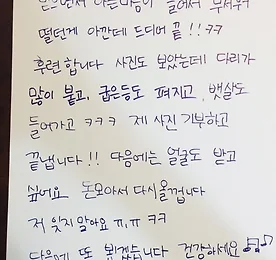 떨던게 아깐데 드디어 끝!! ㅋㅋ
후련합니다 사진도 보았는데 다리가
많이 붙고, 굽은등도 펴지고, 뱃살도
들어가고 ㅋㅋㅋ 제 사진 기부하고
끝냅니다!! 다음에는 얼굴도 받고
싶어요 돈모아서 다시올껍니다
저 잊지 말아요 ㅠ,ㅠ ㅋㅋ
다음에 또 뵙겠습니다 건강하세요 ♬♪